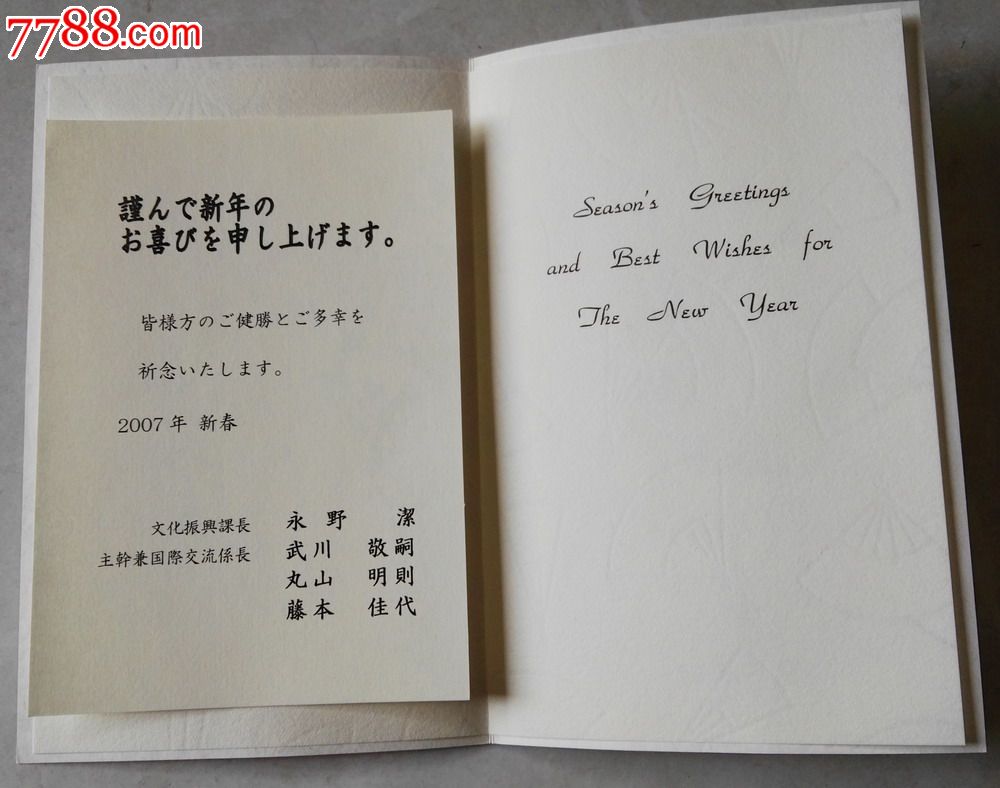 7788.com
謹んで新年の
お喜びを申し上げます。
皆様方のご健勝とご多幸を
祈念いたします。
2007年 新春
文化振興課長 永野 潔
主幹兼国際交流係長 武川 敬嗣
丸山 明則
藤本 佳代
Season's Greetings
and Best Wishes for
The New Year